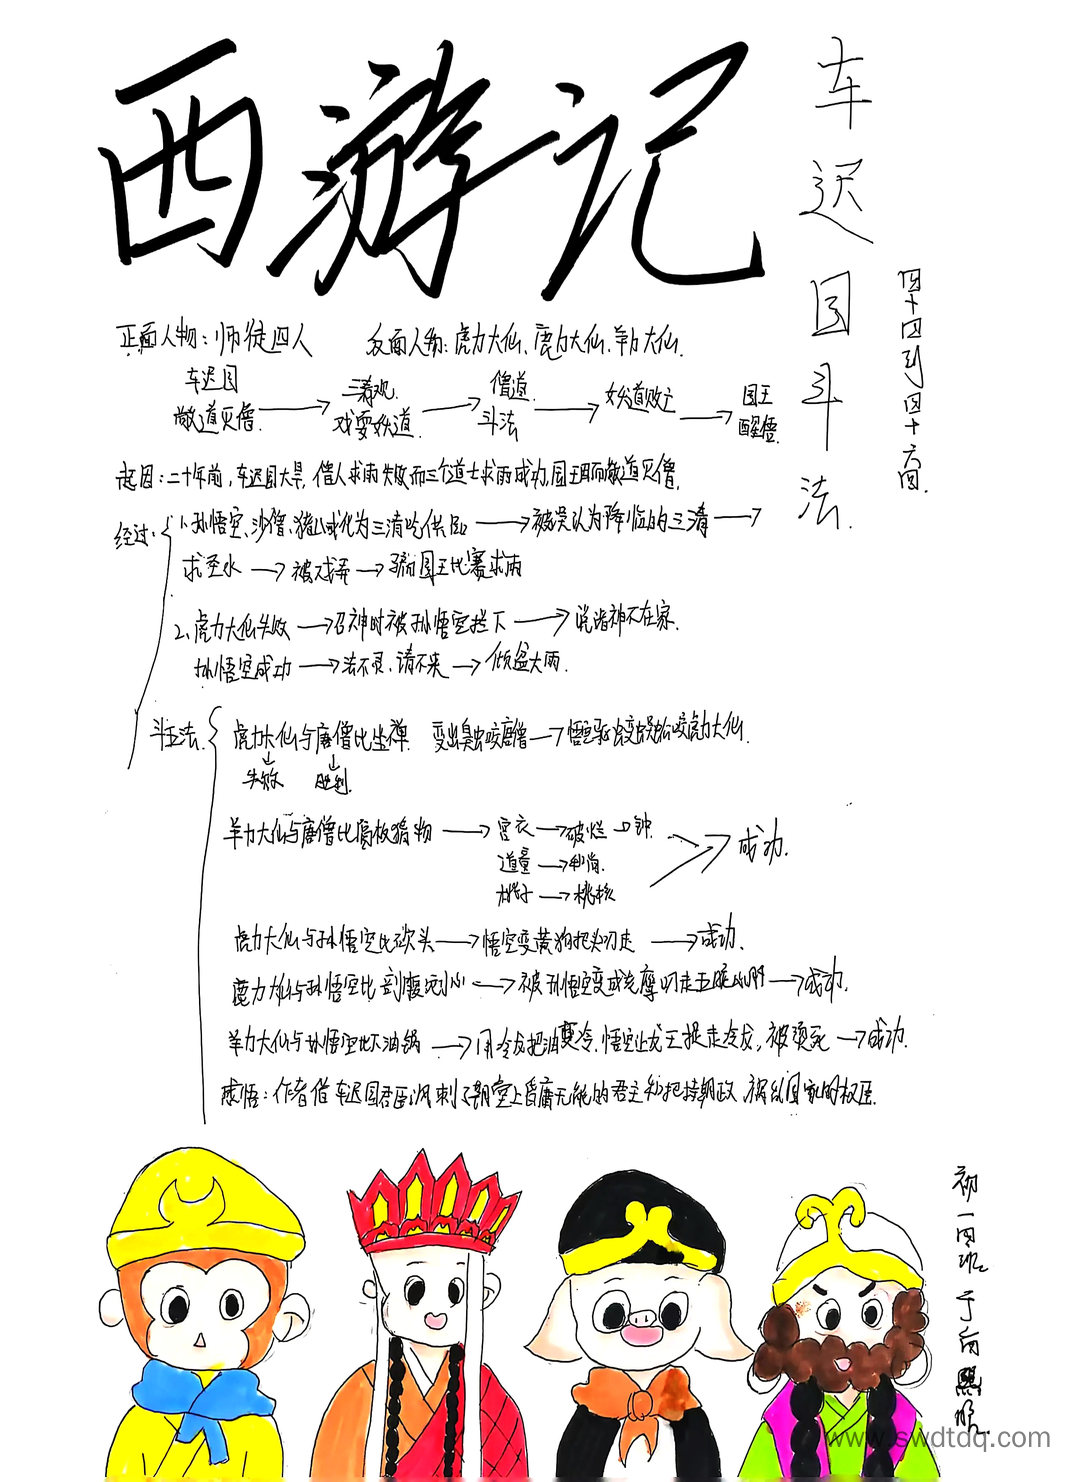 西游记
车迟国斗法.
四十四到四十六回.
正面人物：师徒四人 反面人物：虎力大仙、鹿力大仙、羊力大仙.
车迟国 敬道灭僧. → 三清观 戏耍妖道. → 僧道斗法 → 妖道败亡 → 国王醒悟.
起因：二十年前，车迟国大旱，僧人求雨失败而三个道士求雨成功，国王因而敬道灭僧.
经过： 1.孙悟空、沙僧、猪八戒化为三清吃供品 → 被误认为降临的三清 →
求圣水 → 被戏弄 → 国王比赛求雨
2.虎力大仙失败 → 召神时被孙悟空拦下 → 说诸神不在家.
孙悟空成功 → 法不灵，请不来 → 倾盆大雨.
斗法. 虎力大仙与唐僧比坐禅. 变出臭虫咬唐僧 → 悟空变蜈蚣咬虎力大仙.
↓失败 ↓胜利.
羊力大仙与唐僧比隔板猜物 → 宫衣 → 破烂 钟. → 成功.
道童 → 和尚.
桃子 → 桃核
虎力大仙与孙悟空比砍头 → 悟空变黄狗把头叼走 → 成功.
鹿力大仙与孙悟空比剖腹 → 被孙悟空变成 叼走五脏 → 成功.
羊力大仙与孙悟空比下油锅 → 用冷龙把油变冷，悟空让龙王捉走冷龙，被烫死 → 成功.
感悟：作者借车迟国君臣讽刺了朝堂上昏庸无能的君主和把持朝政，祸乱国家的权臣.
初一四班 于
www.swdtdq.com